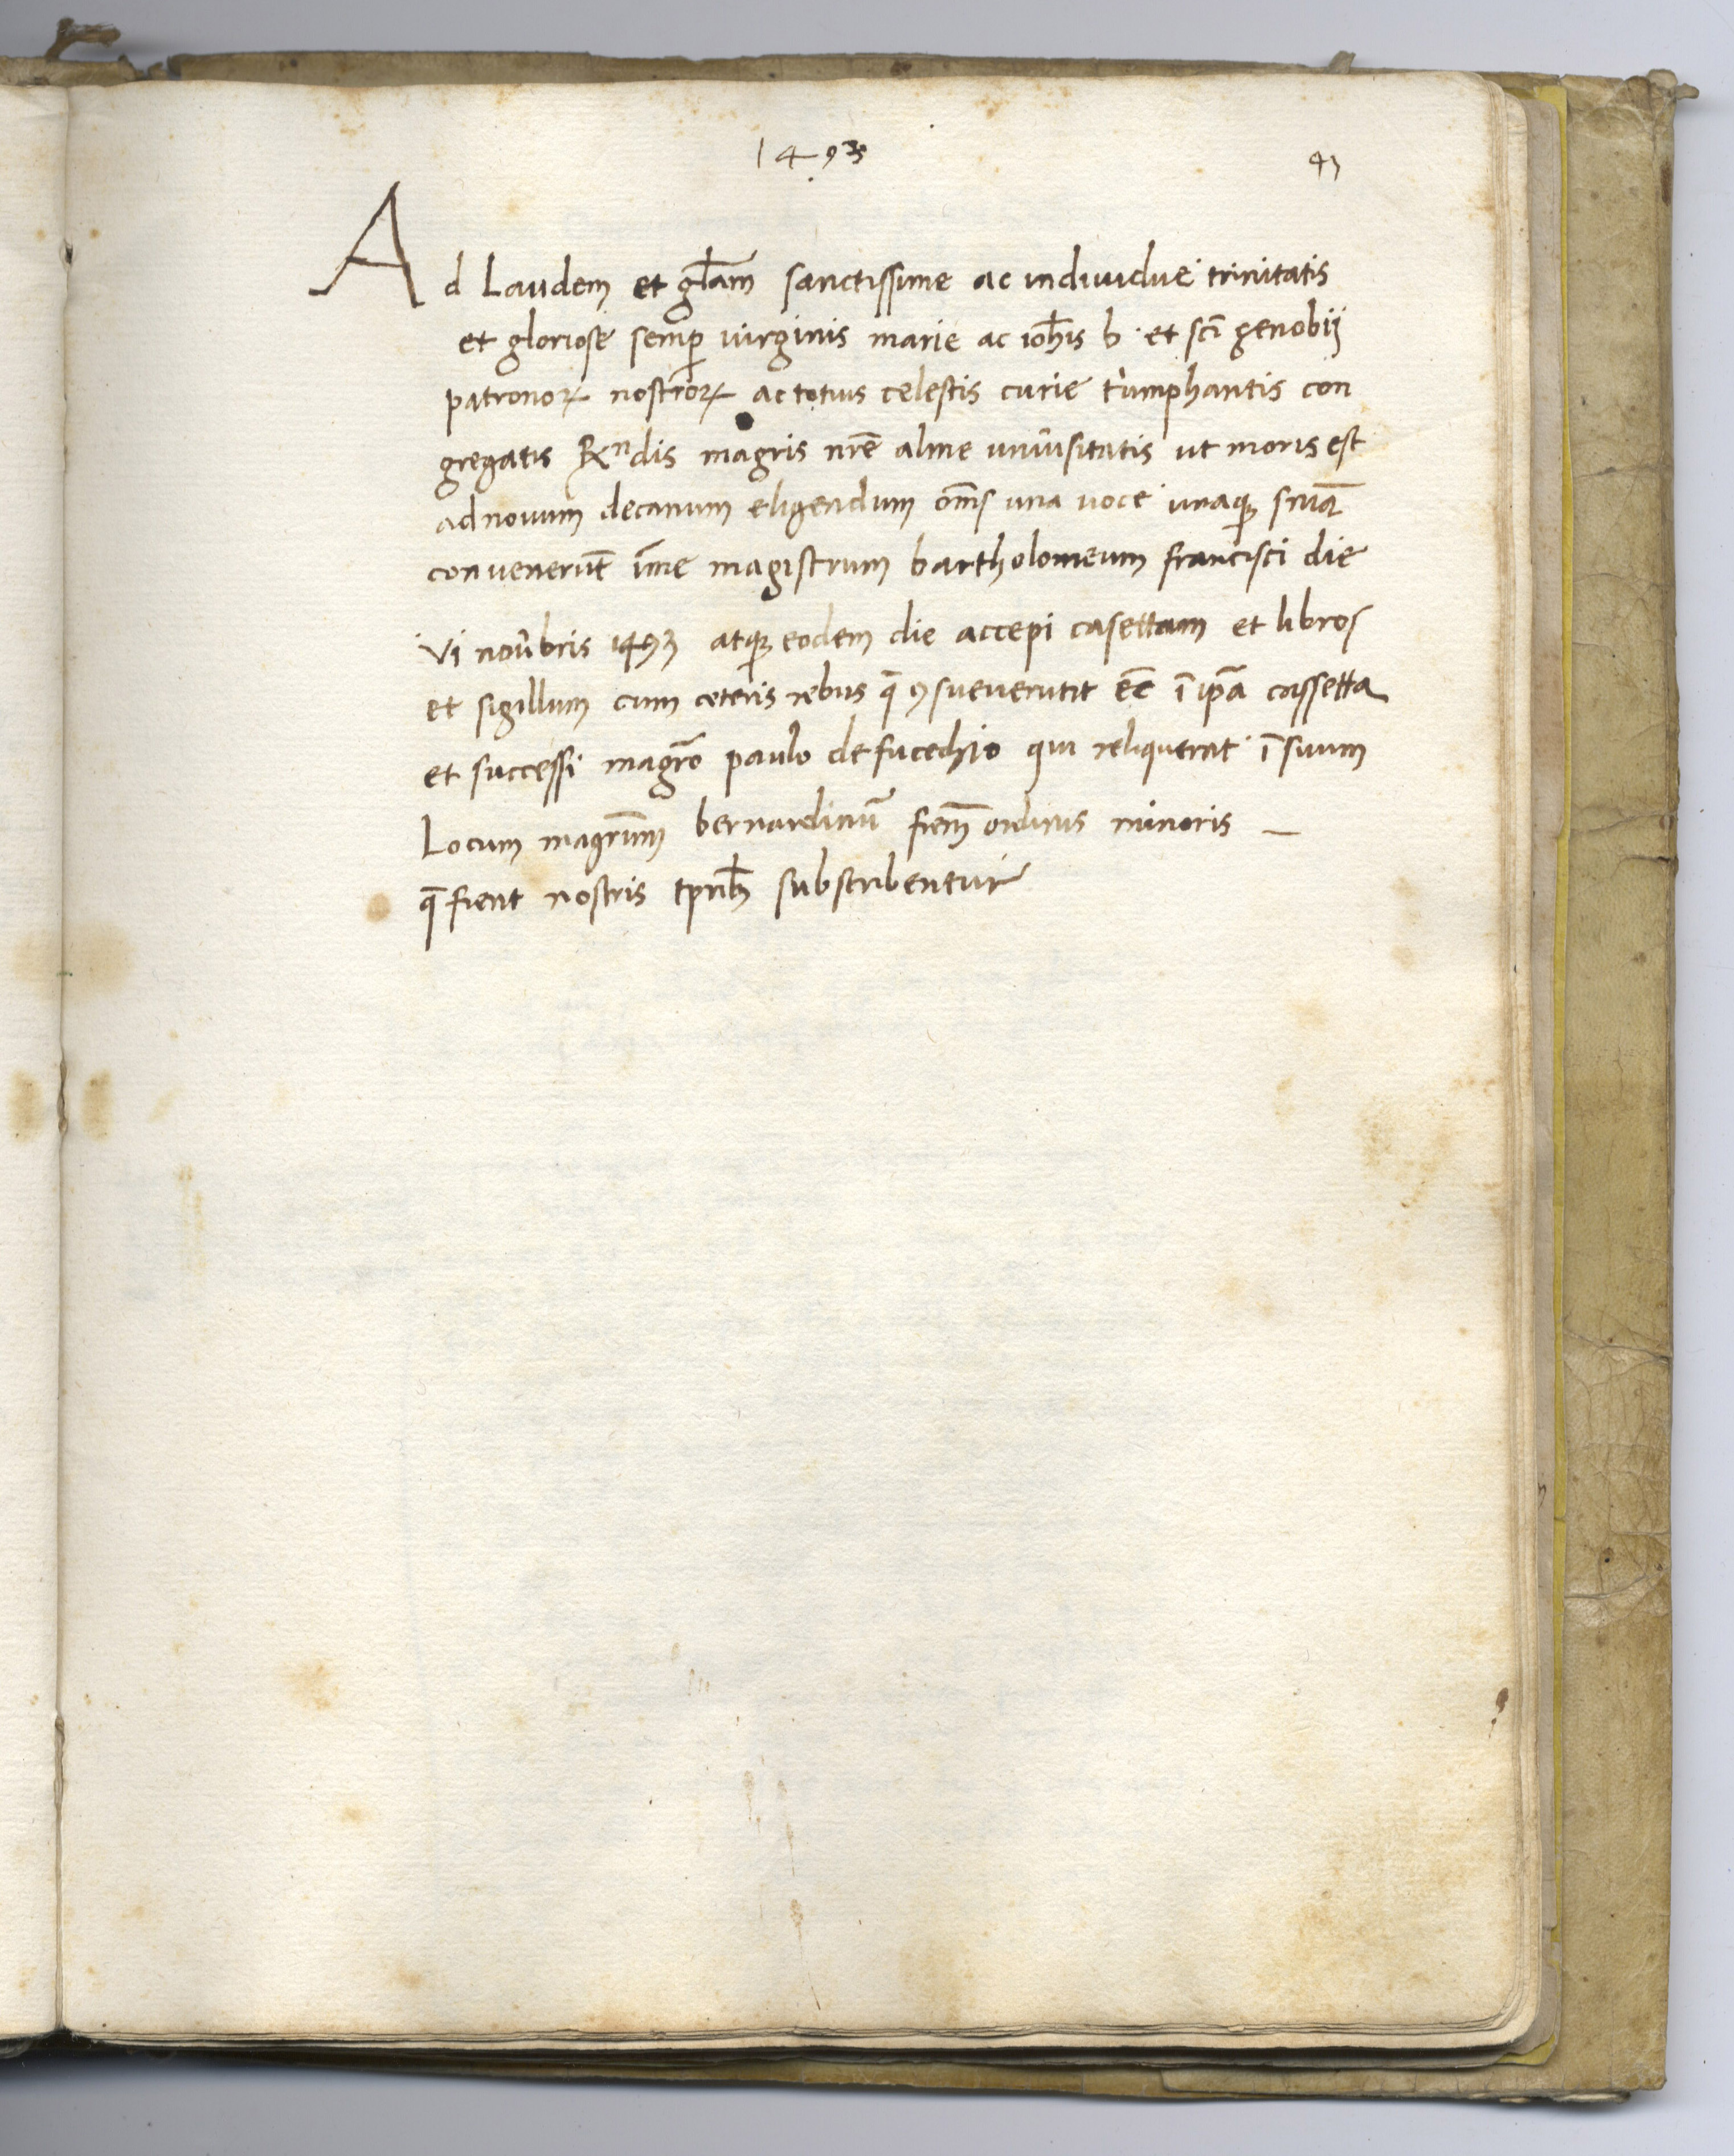 1493
43
Ad Laudem et gl̄am sanctissime ac indiuidue trinitatis
et gloriose semꝑ uirginis marie ac ioh̄is b. et sc̄i zenobij
patronoꝝ nostroꝝ ac totius celestis curie triumphantis con
gregatis Rⁿdis magris nr̄e alme uniūsitatis ut moris est
ad nouum decanum eligendum om̄s una uoce unaqꝫ
conuenerūt īme magistrum bartholomeum francisci die
Vi noūbris 1493 atqꝫ eodem die accepi casettam et libros
et sigillum cum ceteris rebus q̄ ꝯsueuerunt eē ī ip̄a cassetta
et successi magrō paulo de fucechio qui reliquerat ī suum
Locum magrūm bernardinū ordinis minoris —
q̄ fient nostris tpr̄ibꝫ subscribentur